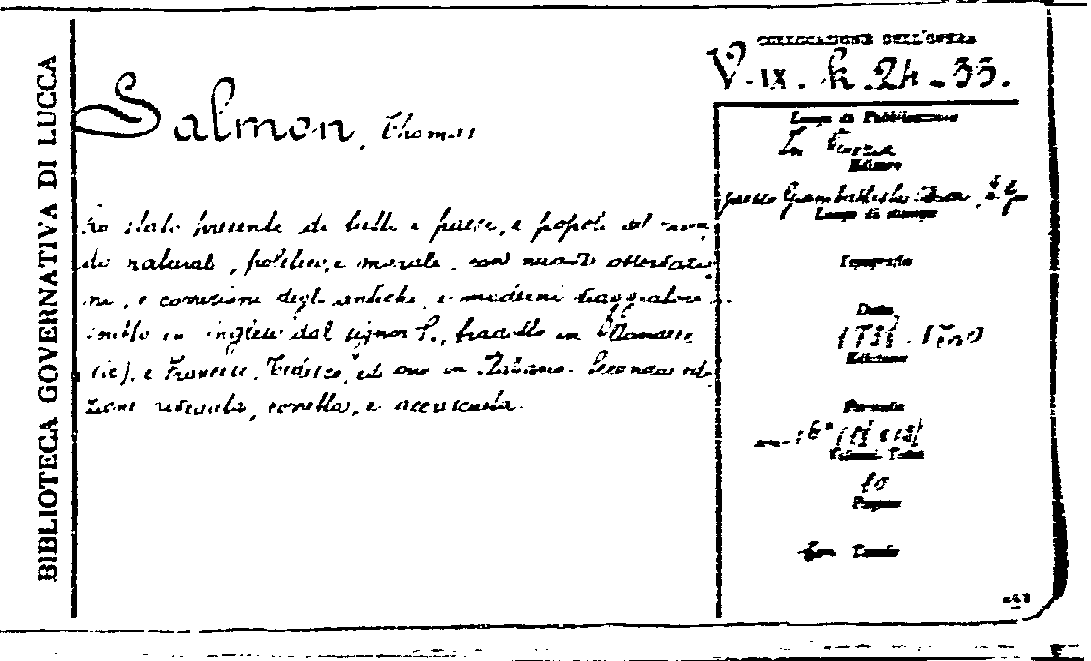 BIBLIOTECA GOVERNATIVA DI LUCCA
COLLOCAZIONE DELL'OPERA
V. IX. h. 24-33.
Salmon, Thomas
Lo stato presente di tutti i paesi, e popoli del mon-
do naturale, politico, e morale, con nuove osservazio-
ni, e correzioni degli antichi, e moderni viaggiatori.
scritto in inglese dal signor S., tradotto in Ollandese
(sic), e Francese, Tedesco, ed ora in Italiano. Seconda edi-
zione riveduta, corretta, e accresciuta.
Luogo di Pubblicazione
In
Editore
presso Giambattista
Luogo di stampa
Tipografia
Data
Edizione
Formato
Volumi, Tomi
Pagine
Tavole